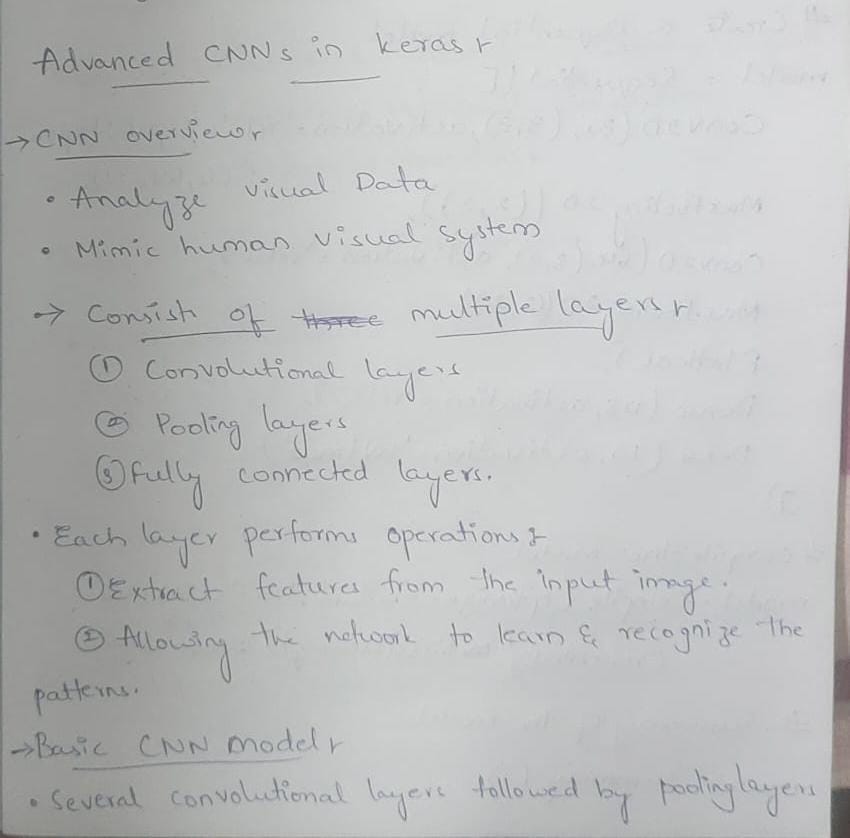 Advanced CNNs in keras :-
→ CNN overview :-
• Analyze visual Data
• Mimic human visual system
→ Consist of three multiple layers :-
① Convolutional layers
② Pooling layers
③ fully connected layers.
• Each layer performs operations :-
① Extract features from the input image.
② Allowing the network to learn & recognize the
patterns.
→ Basic CNN model :-
• Several convolutional layers followed by pooling layers